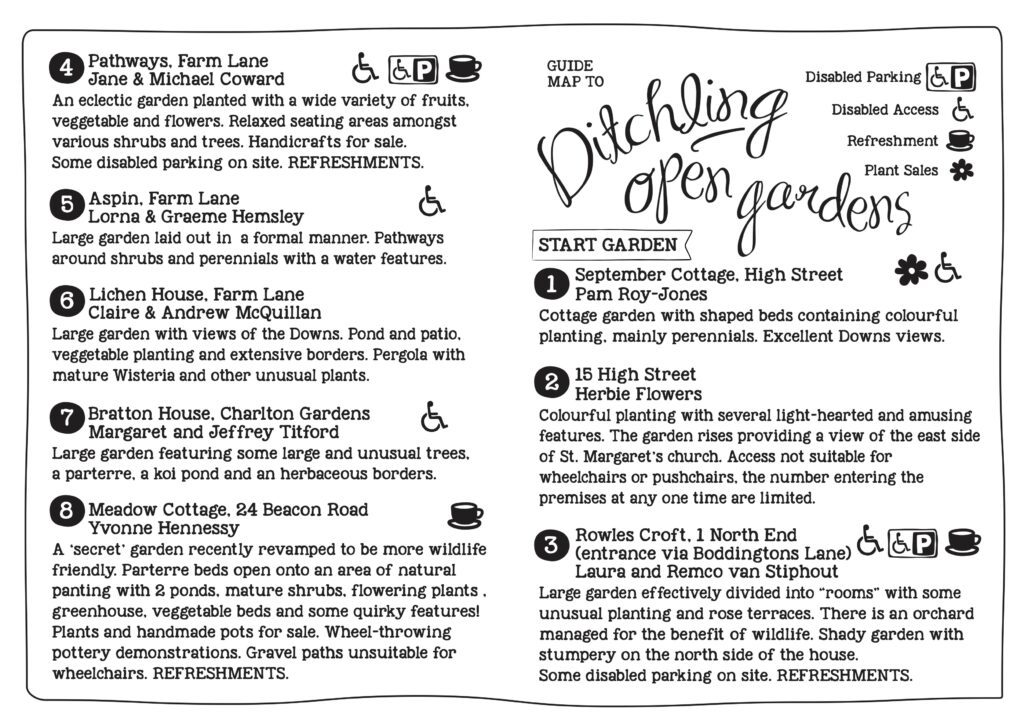 4
Pathways, Farm Lane
Jane & Michael Coward
P
An eclectic garden planted with a wide variety of fruits,
veggetable and flowers. Relaxed seating areas amongst
various shrubs and trees. Handicrafts for sale.
Some disabled parking on site. REFRESHMENTS.
5
Aspin, Farm Lane
Lorna & Graeme Hemsley
Large garden laid out in a formal manner. Pathways
around shrubs and perennials with a water features.
6
Lichen House, Farm Lane
Claire & Andrew McQuillan
Large garden with views of the Downs. Pond and patio,
veggetable planting and extensive borders. Pergola with
mature Wisteria and other unusual plants.
7
Bratton House, Charlton Gardens
Margaret and Jeffrey Titford
Large garden featuring some large and unusual trees,
a parterre, a koi pond and an herbaceous borders.
8
Meadow Cottage, 24 Beacon Road
Yvonne Hennessy
A ‘secret’ garden recently revamped to be more wildlife
friendly. Parterre beds open onto an area of natural
panting with 2 ponds, mature shrubs, flowering plants ,
greenhouse, veggetable beds and some quirky features!
Plants and handmade pots for sale. Wheel-throwing
pottery demonstrations. Gravel paths unsuitable for
wheelchairs. REFRESHMENTS.
GUIDE
MAP TO
Ditchling
open gardens
Disabled Parking P
Disabled Access
Refreshment
Plant Sales
START GARDEN
1
September Cottage, High Street
Pam Roy-Jones
Cottage garden with shaped beds containing colourful
planting, mainly perennials. Excellent Downs views.
2
15 High Street
Herbie Flowers
Colourful planting with several light-hearted and amusing
features. The garden rises providing a view of the east side
of St. Margaret’s church. Access not suitable for
wheelchairs or pushchairs, the number entering the
premises at any one time are limited.
3
Rowles Croft, 1 North End
(entrance via Boddingtons Lane)
Laura and Remco van Stiphout
P
Large garden effectively divided into “rooms” with some
unusual planting and rose terraces. There is an orchard
managed for the benefit of wildlife. Shady garden with
stumpery on the north side of the house.
Some disabled parking on site. REFRESHMENTS.